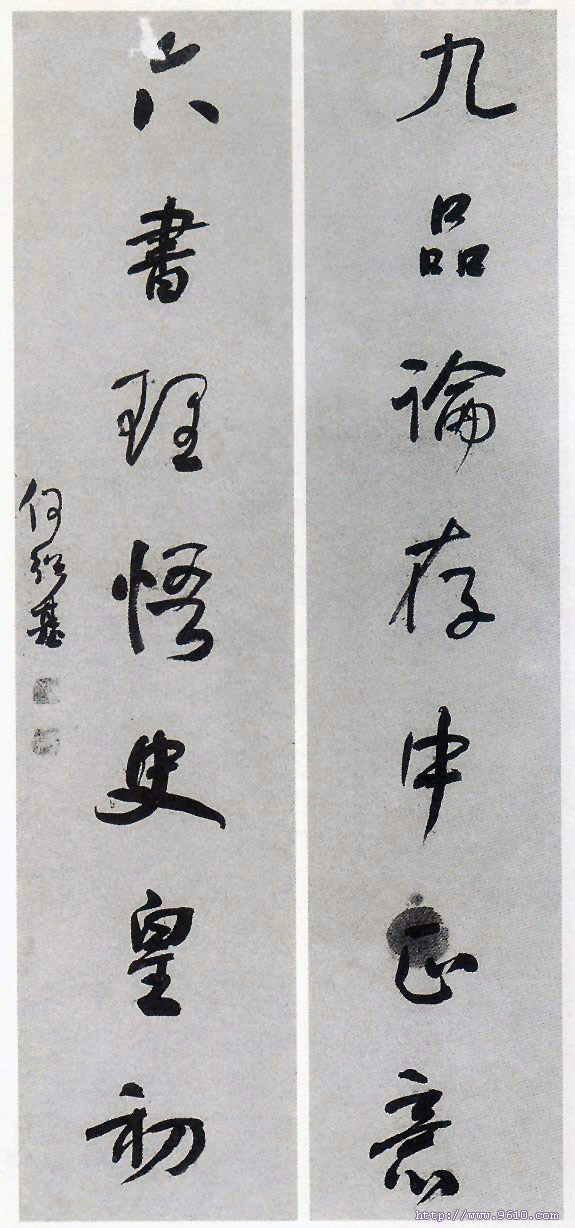 九品論存中正意
六書理悟史皇初
何紹基
http://www.9610.com